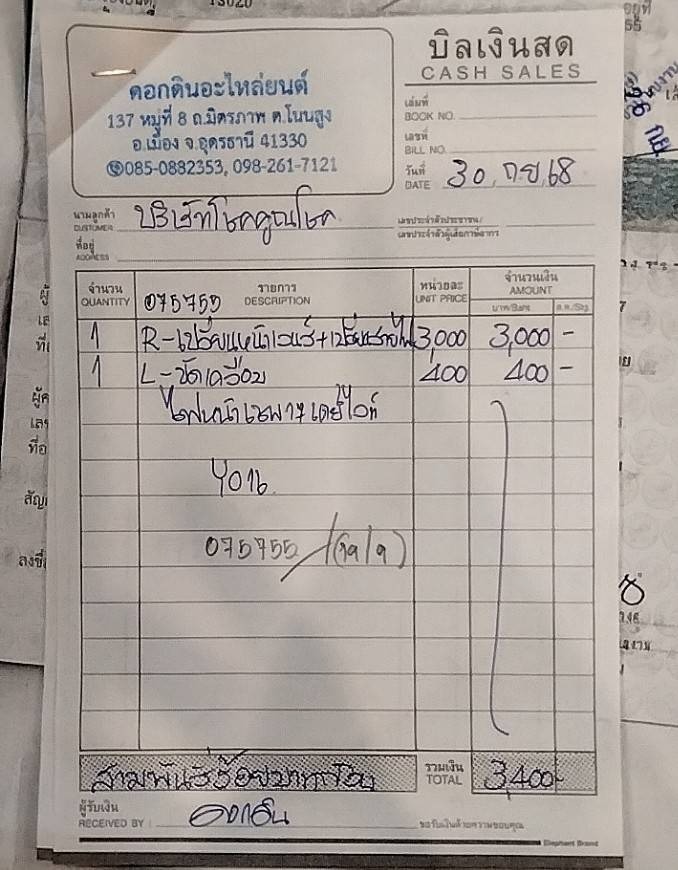 บิลเงินสด
CASH SALES
คอกดินอะไหล่ยนต์
137 หมู่ที่ 8 ถ.มิตรภาพ ต.โนนสูง
อ.เมือง จ.อุดรธานี 41330
085-0882353, 098-261-7121
เล่มที่
BOOK NO.
เลขที่
BILL NO.
วันที่
DATE 30 ก.ย. 68
นามลูกค้า
CUSTOMER บริษัทโชคคูณโชค
เลขประจำตัวประชาชน/
เลขประจำตัวผู้เสียภาษีอากร
ที่อยู่
ADDRESS
จำนวน รายการ หน่วยละ จำนวนเงิน
QUANTITY 075755 DESCRIPTION UNIT PRICE AMOUNT
บาท/Baht ส.ต./Stg
1 R-เปลี่ยนหน้าเลนส์+เปลี่ยนสายไฟ 3,000 3,000 -
1 L-ขัดเคลือบ 400 400 -
ไฟหน้าเฉพาะเดย์ไลท์
075755
สามพันสี่ร้อยบาทถ้วน รวมเงิน 3,400 -
TOTAL
ผู้รับเงิน
RECEIVED BY
ขอรับเงินด้วยความขอบคุณ
Elephant Brand